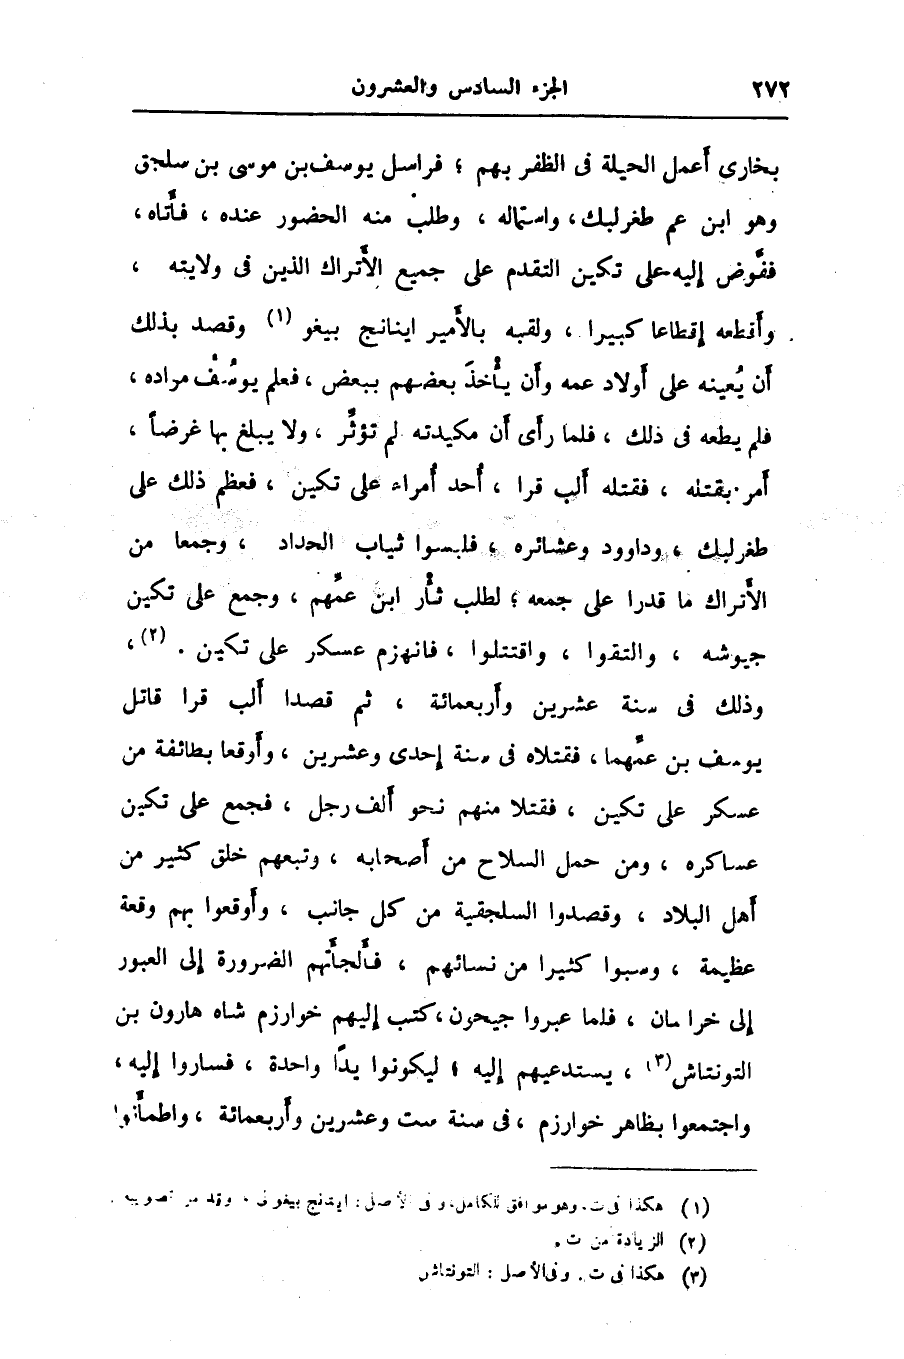 ٢٧٢ الجزء السادس والعشرون
بخارى أعمل الحيلة فى الظفر بهم ؛ فراسل يوسف بن موسى بن سلجق
وهو ابن عم طغرلبك ، واستماله ، وطلب منه الحضور عنده ، فأتاه ،
ففوَّض إليه على تكين التقدم على جميع الأتراك الذين فى ولايته ،
وأقطعه إقطاعا كبيرا ، ولقبه بالأمير اينانج بيغو (١) وقصد بذلك
أن يُعينه على أولاد عمه وأن يأخذَ بعضهم ببعض ، فعلم يوسُف مراده ،
فلم يطعه فى ذلك ، فلما رأى أن مكيدته لم تؤثِّر ، ولا يبلغ بها غرضاً ،
أمر بقتله ، فقتله ألب قرا ، أحد أُمراء على تكين ، فعظم ذلك على
طغرلبك ، وداوود وعشائره ، فلبسوا ثياب الحداد ، وجمعا من
الأتراك ما قدرا على جمعه ؛ لطلب ثأْر ابن عمِّهم ، وجمع على تكين
جيوشه ، والتقوا ، واقتتلوا ، فانهزم عسكر على تكين . (٢) ،
وذلك فى سنة عشرين وأربعمائة ، ثم قصدا ألب قرا قاتل
يوسف بن عمِّهما ، فقتلاه فى سنة إحدى وعشرين ، وأوقعا بطائفة من
عسكر على تكين ، فقتلا منهم نحو ألف رجل ، فجمع على تكين
عساكره ، ومن حمل السلاح من أصحابه ، وتبعهم خلق كثير من
أهل البلاد ، وقصدوا السلجقية من كل جانب ، وأوقعوا بهم وقعة
عظيمة ، وسبوا كثيرا من نسائهم ، فألجأتهم الضرورة إلى العبور
إلى خراسان ، فلما عبروا جيحون ، كتب إليهم خوارزم شاه هارون بن
التونتاش (٣) ، يستدعيهم إليه ؛ ليكونوا يدًا واحدة ، فساروا إليه ،
واجتمعوا بظاهر خوارزم ، فى سنة ست وعشرين وأربعمائة ، واطمأنوا
(١) هكذا فى ت ، وهو موافق للكامل ، وفى الأصل : اينانج بيغو فى ، وقد مر تصويبه .
(٢) الزيادة من ت .
(٣) هكذا فى ت . وفى الأصل : التونتاش